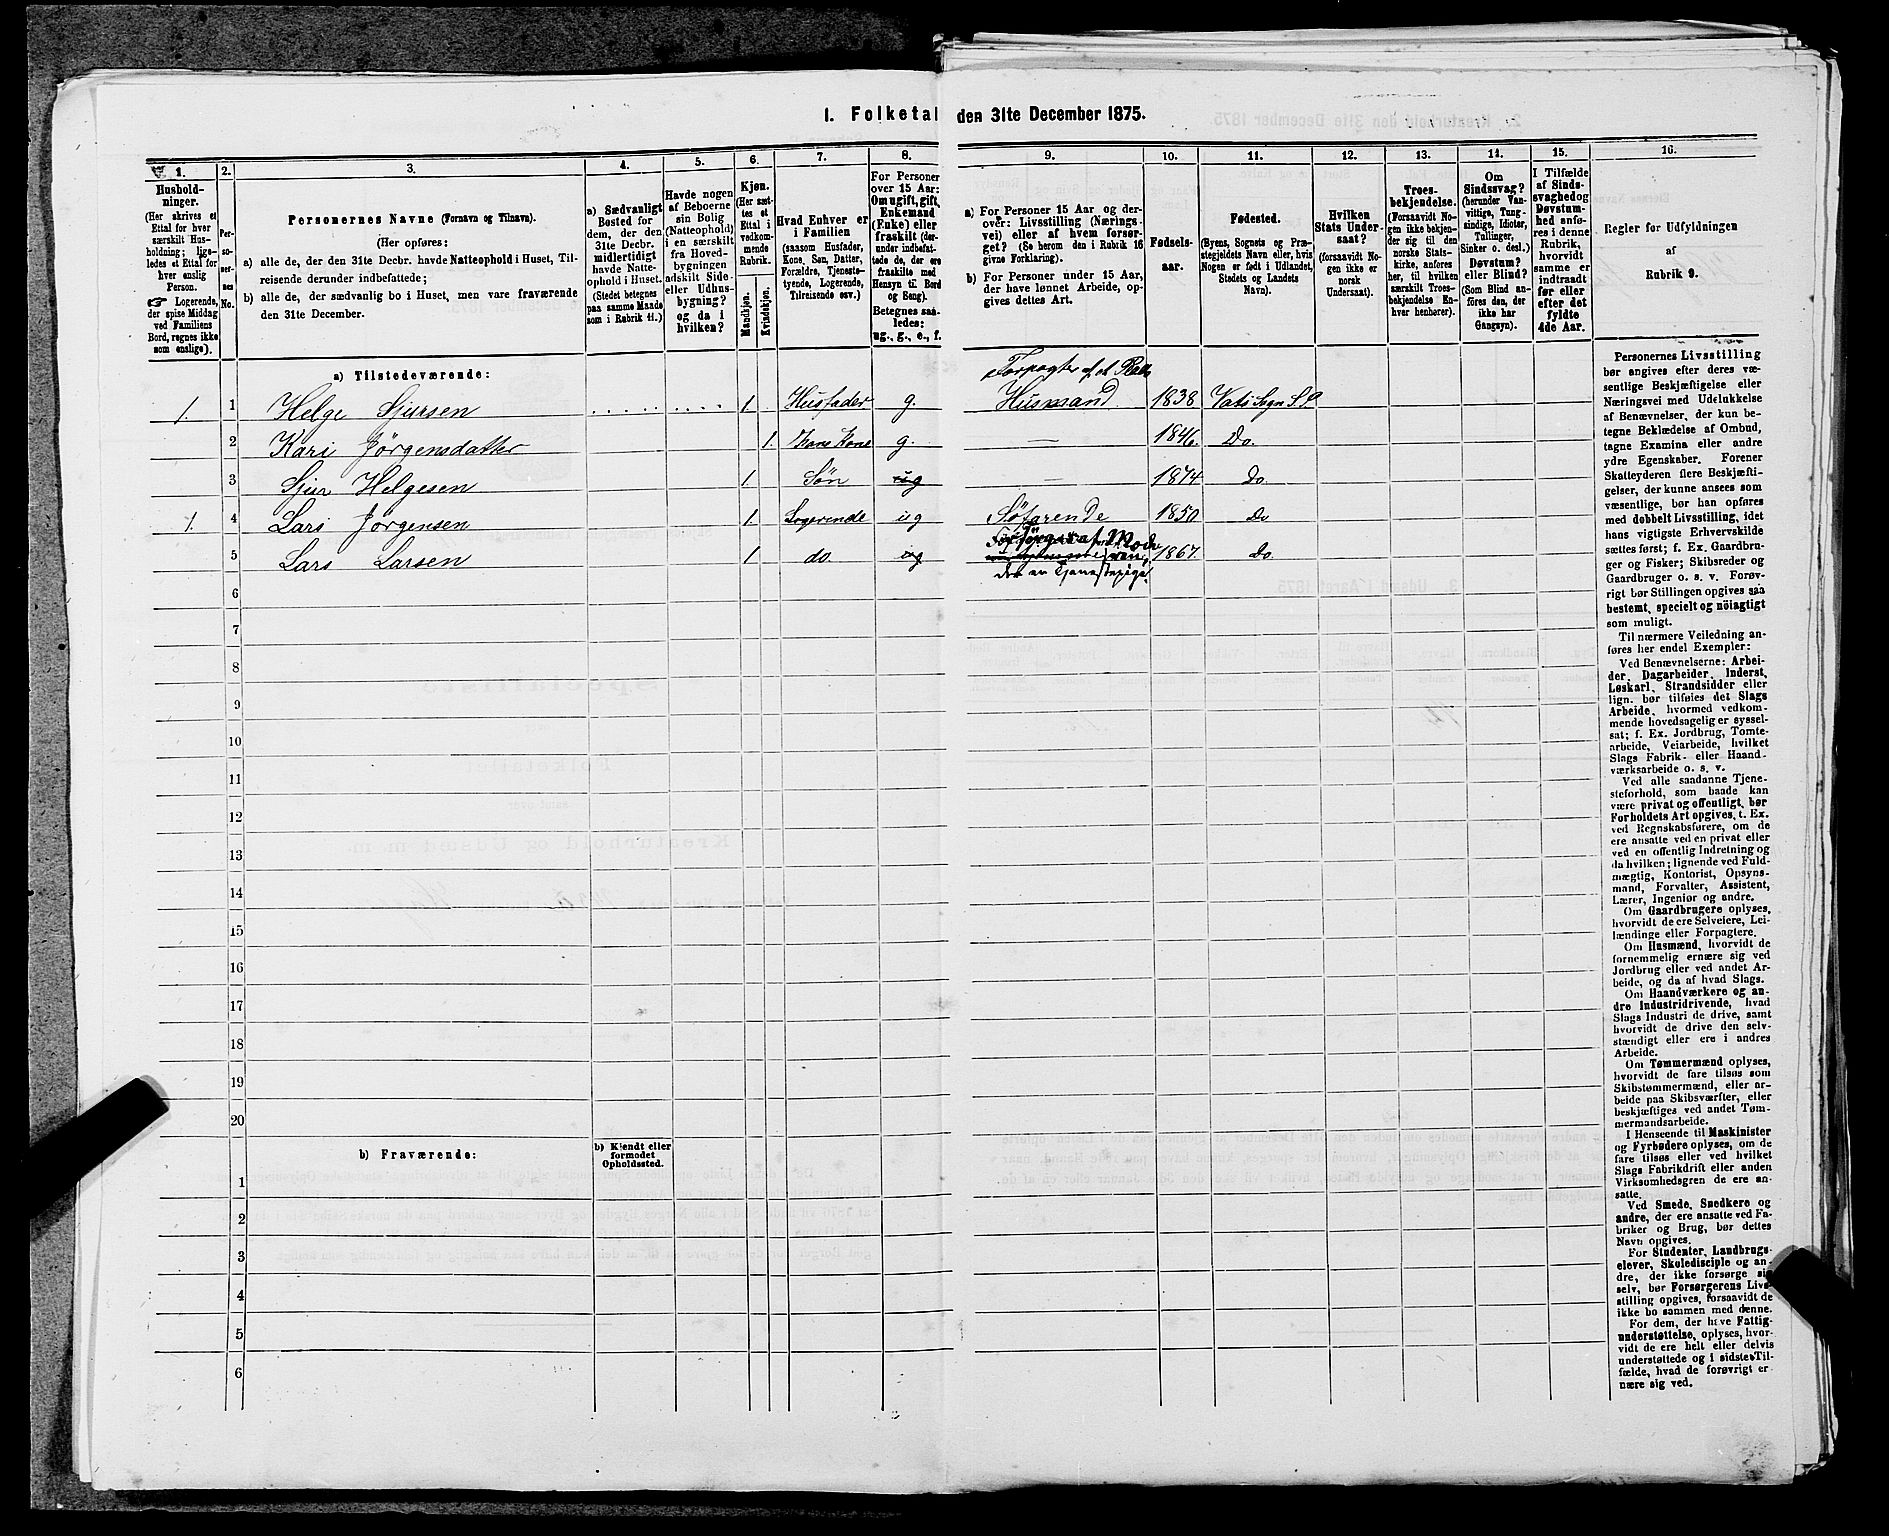 1. Folketal den 31te December 1875.
1.
Hushold-
ninger.
(Her skrives et
Ettal for hver
særskilt Hus-
holdning; lige-
ledes et Ettal for
hver enslig
Person.
☞ Logerende,
der spise Middag
ved Familiens
Bord, regnes ikke
som enslige).
2.
Per-
so-
ner-
nes
No.
3.
Personernes Navne (Fornavn og Tilnavn).
(Her opføres:
a) alle de, der den 31te Decbr. havde Natteophold i Huset, Til-
reisende derunder indbefattede;
b) alle de, der sædvanlig bo i Huset, men vare fraværende
den 31te December.
4.
a) Sædvanligt
Bosted for
dem, der den
31te Decbr.
midlertidigt
havde Natte-
ophold i Huset.
(Stedet betegnes
paa samme Maade
som i Rubrik 11.)
5.
Havde nogen
af Beboerne
sin Bolig
(Natteophold)
i en særskilt
fra Hoved-
bygningen
adskilt Side-
eller Udhus-
bygning?
og da i
hvilken?
6.
Kjøn.
(Her sæt-
tes et
Ettal i
vedkom-
mende
Rubrik.
Mandkjøn.
Kvindekjøn.
7.
Hvad Enhver er
i Familien
(saasom Husfader,
Kone, Søn, Datter,
Forældre, Tjeneste-
tyende, Logerende,
Tilreisende osv.)
8.
For Personer
over 15 Aar:
Om ugift, gift,
Enkemand
(Enke) eller
fraskilt (der-
under indbefat-
tede de, der ere
fraskilte med
Hensyn til Bord
og Seng).
Betegnes saa-
ledes:
ug., g., e., f.
9.
a) For Personer 15 Aar og der-
over: Livsstilling (Nærings-
vei) eller af hvem forsør-
get? (Se herom den i Rubrik 16
givne Forklaring).
b) For Personer under 15 Aar,
der have lønnet Arbeide, op-
gives dettes Art.
10.
Fødsels-
aar.
11.
Fødested.
(Byens, Sognets og Præ-
stegjeldets Navn eller, hvis
Nogen er født i Udlandet,
Stedets og Landets
Navn).
12.
Hvilken
Stats Under-
saat?
(forsaavidt No-
gen ikke er
norsk
Undersaat).
13.
Troes-
bekjendelse.
(Forsaavidt No-
gen ikke bekjen-
der sig til den
norske Stats-
kirke, anføres
her, til hvilken
særskilt Troes-
bekjendelse En-
hver henhører).
14.
Om
Sindssvag?
(herunder Van-
vittige, Tung-
sindige, Idioter,
Tullinger,
Sinker o. desl.)
Døvstum?
eller Blind?
(Som Blind an-
føres den, der
ikke har
Gangsyn).
15.
I Tilfælde
af Sinds-
svaghed og
Døvstum-
hed anfø-
res i denne
Rubrik,
hvorvidt
samme er
indtraadt
før eller
efter det
fyldte
4de Aar.
16.
Regler for Udfyldningen
af
Rubrik 9.
a) Tilstedeværende:
Forpagter af et Plads
1. 1 Helge Sjursen 1. Husfader g. Husmand 1838 Vats Sogn S.P.
2 Kari Jørgensdatter 1. Kone g. — 1846. Do.
3 Sjur Helgesen 1 Søn ug — 1874 Do
1. 4 Lars Jørgensen 1. Logerende ug Søfarende 1850 Do
5 Lars Larsen 1 do. ug Forsörges af Mode
ren, 1867. Do.
der en Tjenestepige
6
7
8
9
10
11
12
13
14
15
16
17
18
19
20
b) Fraværende:
b) Kjendt eller
formodet
Opholdssted.
1
2
3
4
5
6
Personernes Livsstilling
bør angives efter deres væ-
sentlige Beskjæftigelse eller
Næringsvei med Udelukkelse
af Benævnelser, der kun be-
tegne Beklædelse af Ombud,
tagne Examina eller andre
ydre Egenskaber. Forener
Skatteyderen flere Beskjæfti-
gelser, der kunne ansees som
væsentlige, bør han opføres
med dobbelt Livsstilling, idet
hans vigtigste Erhvervskilde
sættes først; f. Ex. Gaardbru-
ger og Fisker; Skibsreder og
Gaardbruger o. s. v. Forøv-
rigt bør Stillingen opgives saa
bestemt, specielt og nöiagtigt
som muligt.
Til nærmere Veiledning an-
føres her endel Exempler:
Ved Benævnelserne: Arbei-
der, Dagarbeider, Inderst,
Løskarl, Strandsidder eller
lign. bør tilføies det Slags
Arbeide, hvormed vedkom-
mende hovedsagelig er syssel-
sat; f. Ex. Jordbrug, Tomte-
arbeide, Veiarbeide, hvilket
Slags Fabrik- eller Haand-
værksarbeide o. s. v.
Ved alle saadanne Tjene-
steforhold, som baade kan
være privat og offentligt, bør
Forholdets Art opgives, t. Ex.
ved Regnskabsførere, om de
ere ansatte ved en privat eller
ved en offentlig Indretning og
da hvilken; lignende ved Fuld-
mægtig, Kontorist, Opsyns-
mand, Forvalter, Assistent,
Lærer, Ingeniør og andre.
Om Gaardbrugere oplyses,
hvorvidt de ere Selveiere, Lei-
lændinge eller Forpagtere.
Om Husmænd, hvorvidt de
fornemmelig ernære sig ved
Jordbrug eller ved andet Ar-
beide, og da af hvad Slags.
Om Haandværkere og an-
dre Industridrivende, hvad
Slags Industri de drive, samt
hvorvidt de drive den selv-
stændigt eller ere i andres
Arbeide.
Om Tømmermænd oplyses,
hvorvidt de fare tilsøs som
Skibstømmermænd, eller ar-
beide paa Skibsværfter, eller
beskjæftiges ved andet Tøm-
mermandsarbeide.
I Henseende til Maskinister
og Fyrbødere oplyses, om de
fare tilsøs eller ved hvilket
Slags Fabrikdrift eller anden
Virksomhedsgren de ere an-
satte.
Ved Smede, Snedkere og
andre, der ere ansatte ved Fa-
briker og Brug, bør dettes
Navn opgives.
For Studenter, Landbrugs-
elever, Skoledisciple og an-
dre, der ikke forsørge sig
selv, bør Forsørgerens Livs-
stilling opgives, forsaavidt de
ikke bo sammen med denne.
For dem, der have Fattig-
understøttelse, oplyses, hvor-
vidt de ere helt eller delvis
understøttede og i sidste Til-
fælde, hvad de forøvrigt er-
nære sig ved.